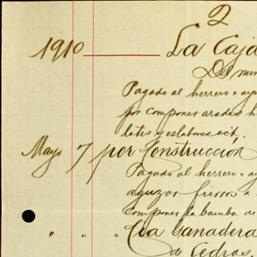 2
1910 La Caja
Del
Pagado al herrero
por componer arados
Mayo 7 por Construcción
Pagado al herrero
aguzar fierros a
componer la bomba de
" " Cia Ganadera
de Cedros.